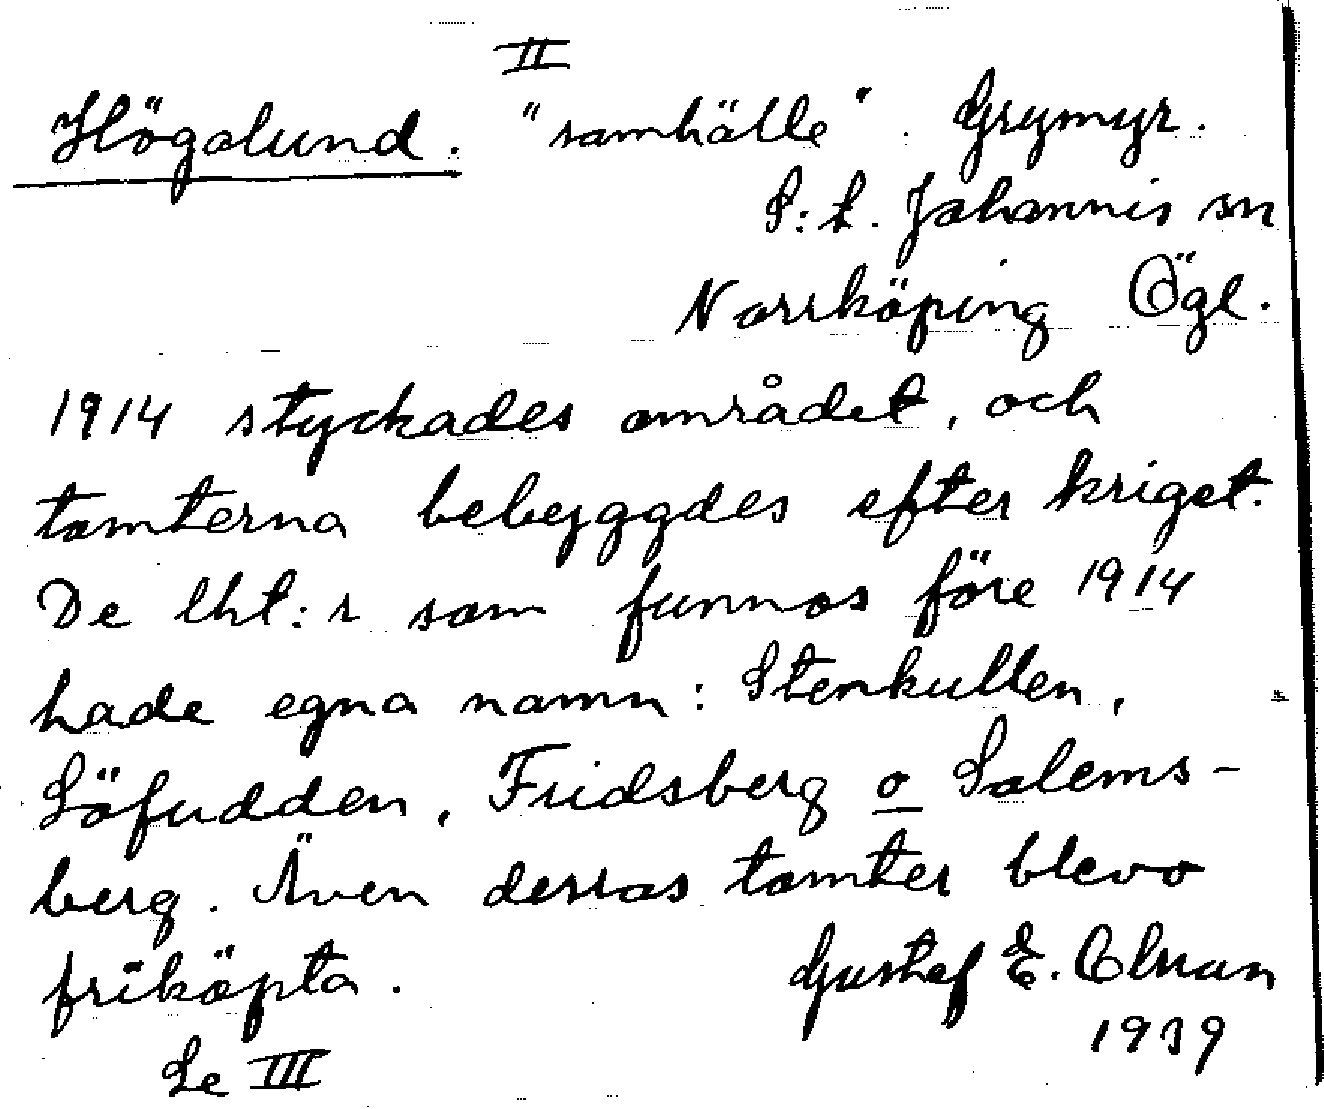 II
Högalund. "samhälle". Grymyr.
S:t. Johannis sn
Norrköping Ögl.
1914 styckades området, och
tomterna bebyggdes efter kriget.
De lht:r som funnos före 1914
hade egna namn: Stenkullen,
Löfudden, Fridsberg o Salems-
berg. Även derras tomter blevo
friköpta. Gustaf E.
1939
Se III